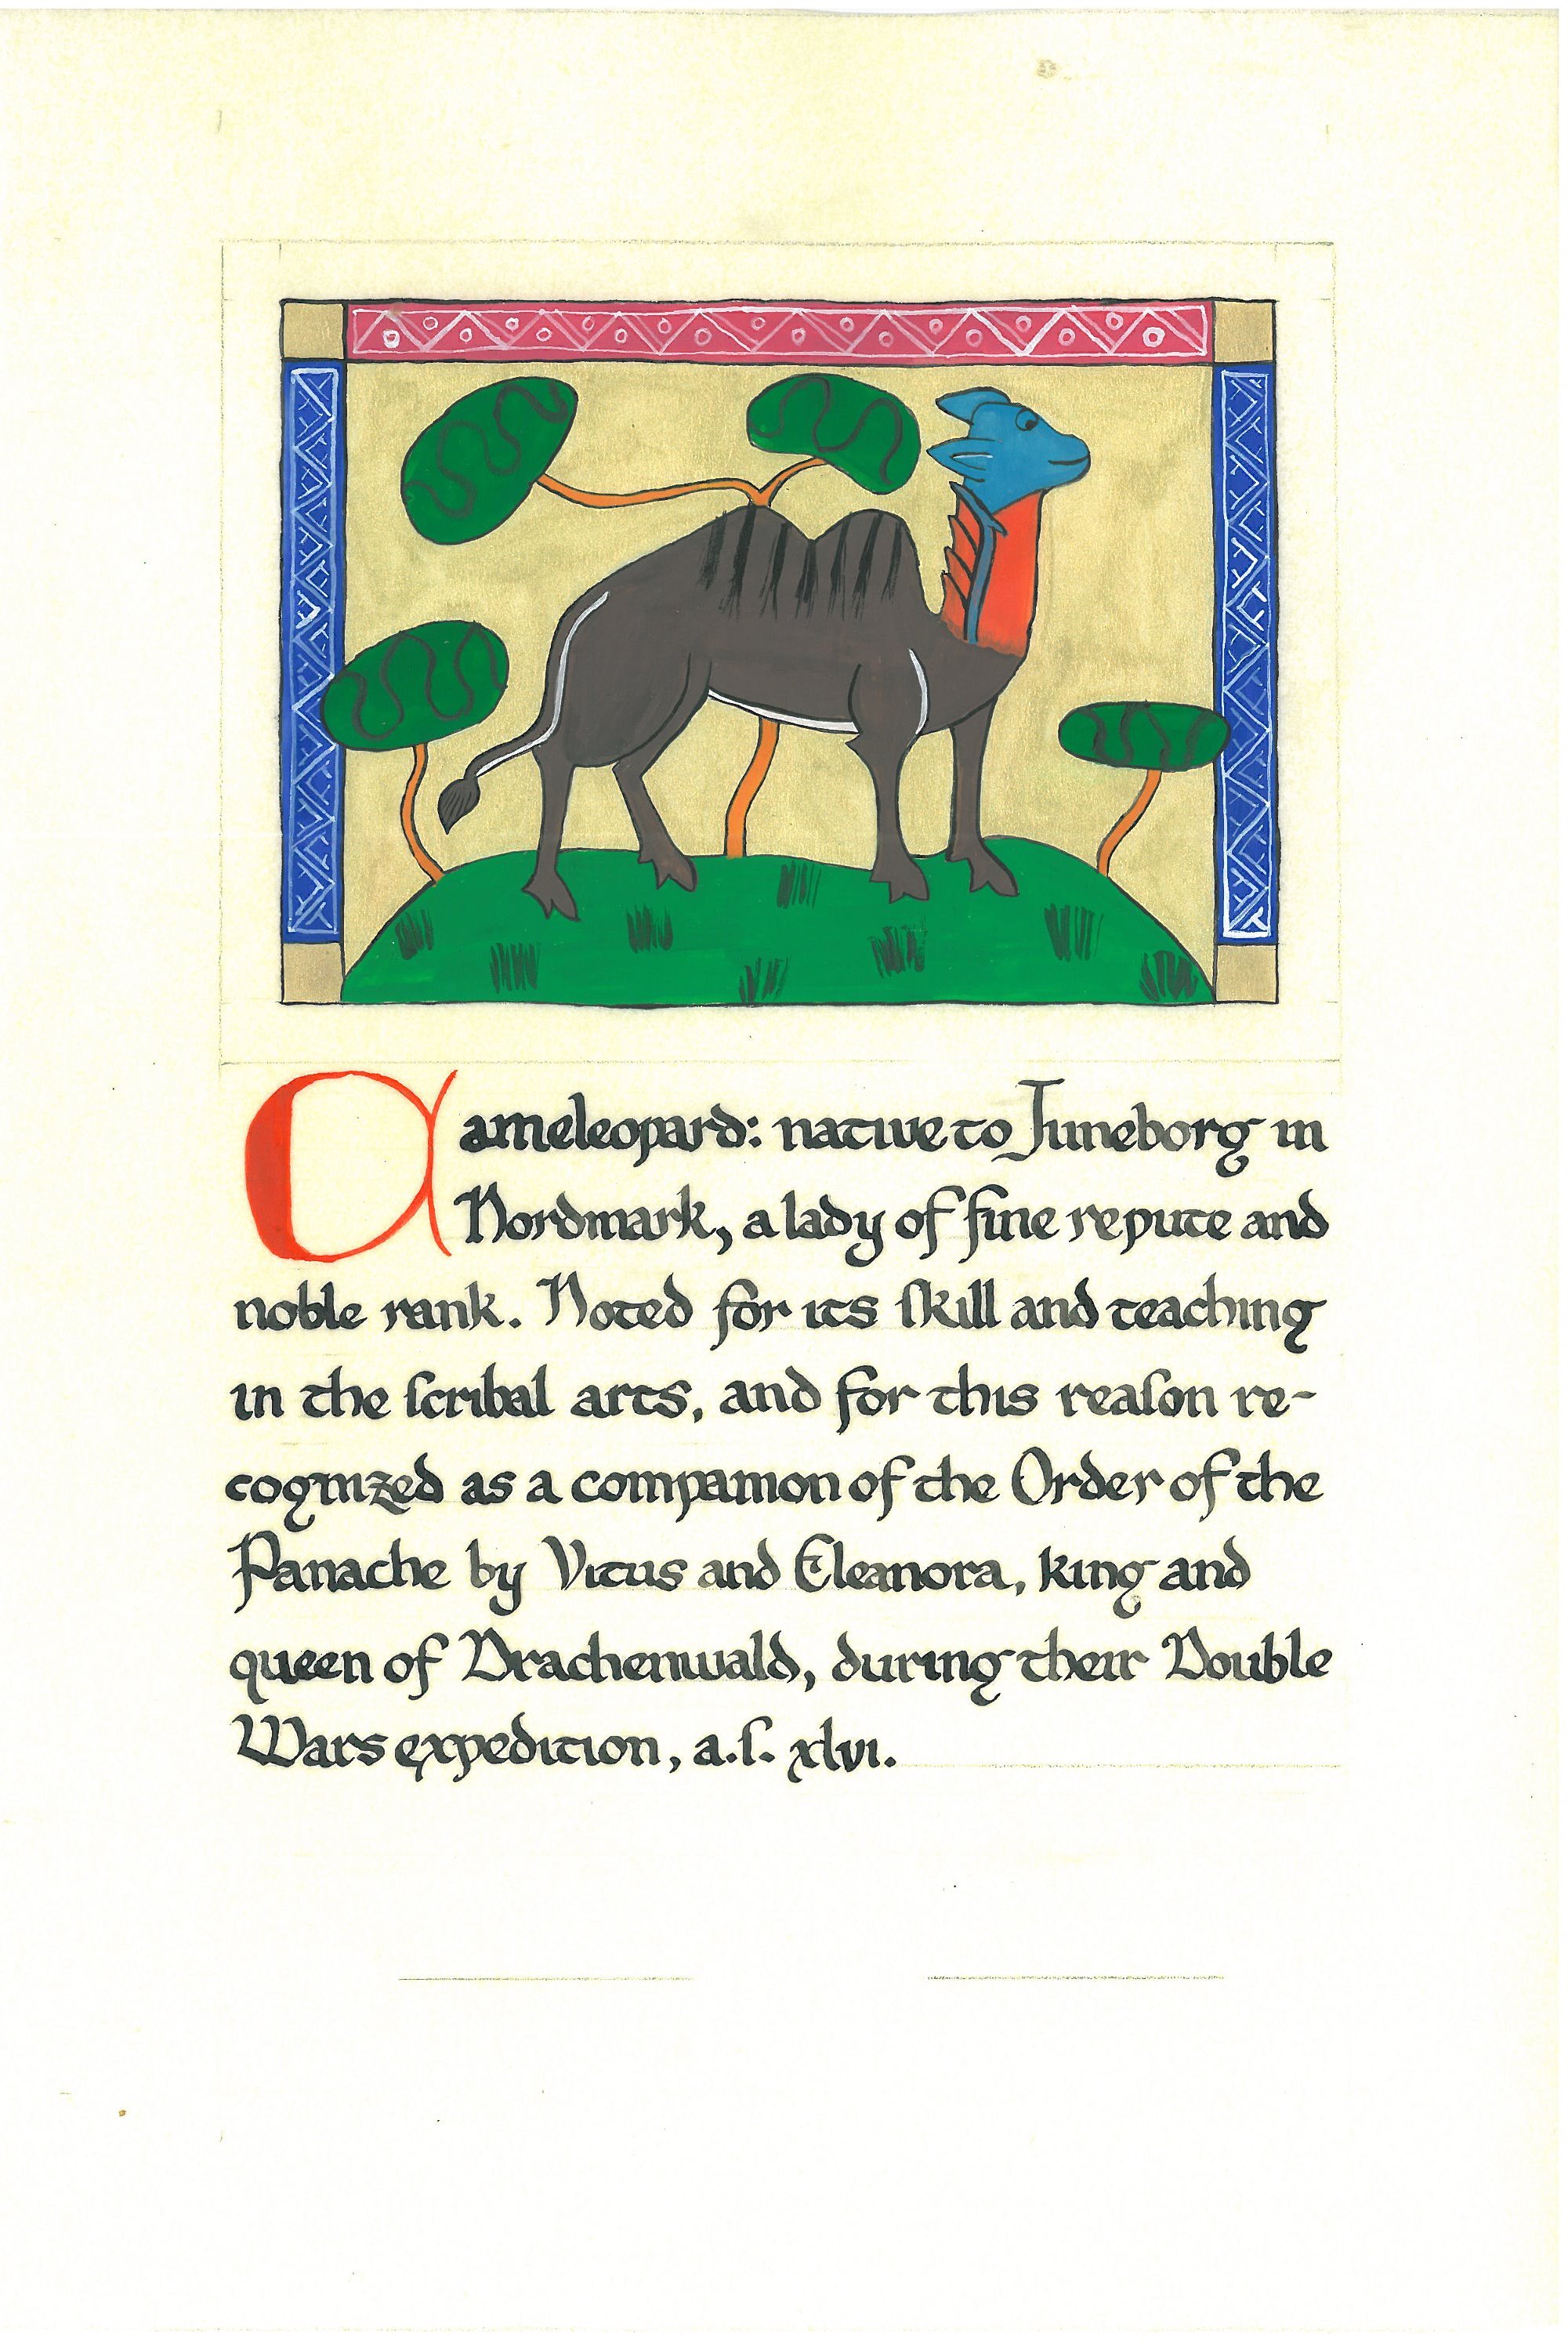 Cameleopard: native to Juneborg in
Nordmark, a lady of fine repute and
noble rank. Noted for its ſkill and teaching
in the ſcribal arts, and for this reaſon re-
cognized as a companion of the Order of the
Panache by Vitus and Eleanora, king and
queen of Drachenwald, during their Double
Wars expedition, a.ſ. xlvi.